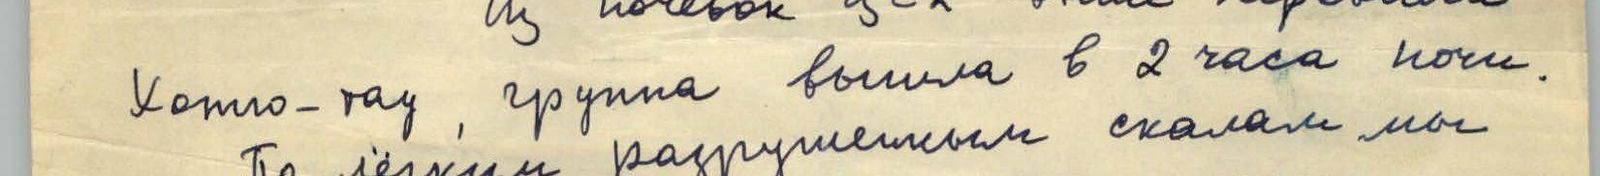 Из ночевок
Хотю-тау, группа вышла в 2 часа ночи.
По лёгким разрушенным скалам мы